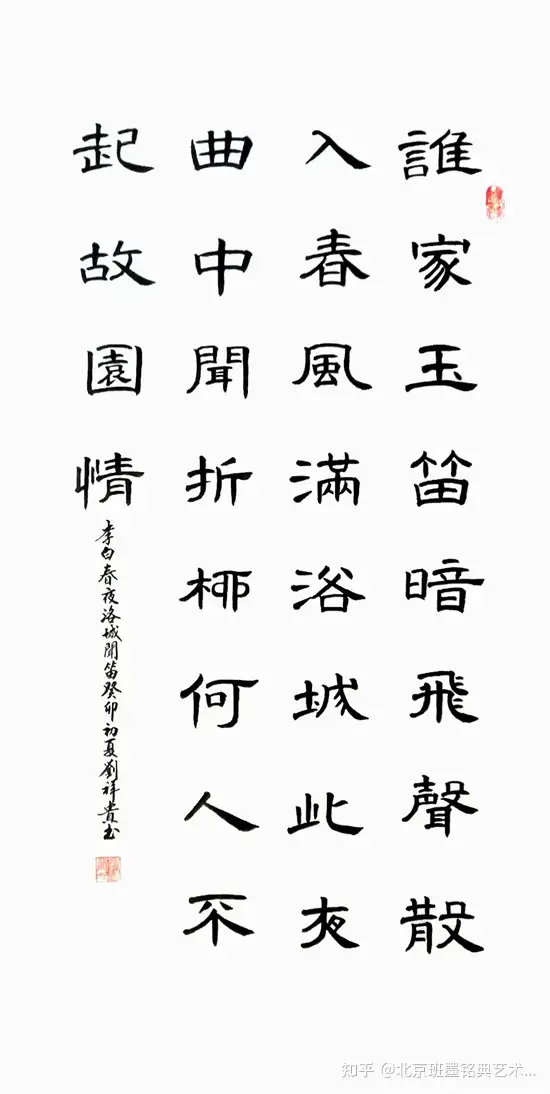 誰家玉笛暗飛聲散
入春風滿浴城此夜
曲中聞折柳何人不
起故園情
李白春夜洛城聞笛癸卯初夏劉祥貴书
知乎 @北京班墨铭典艺术...